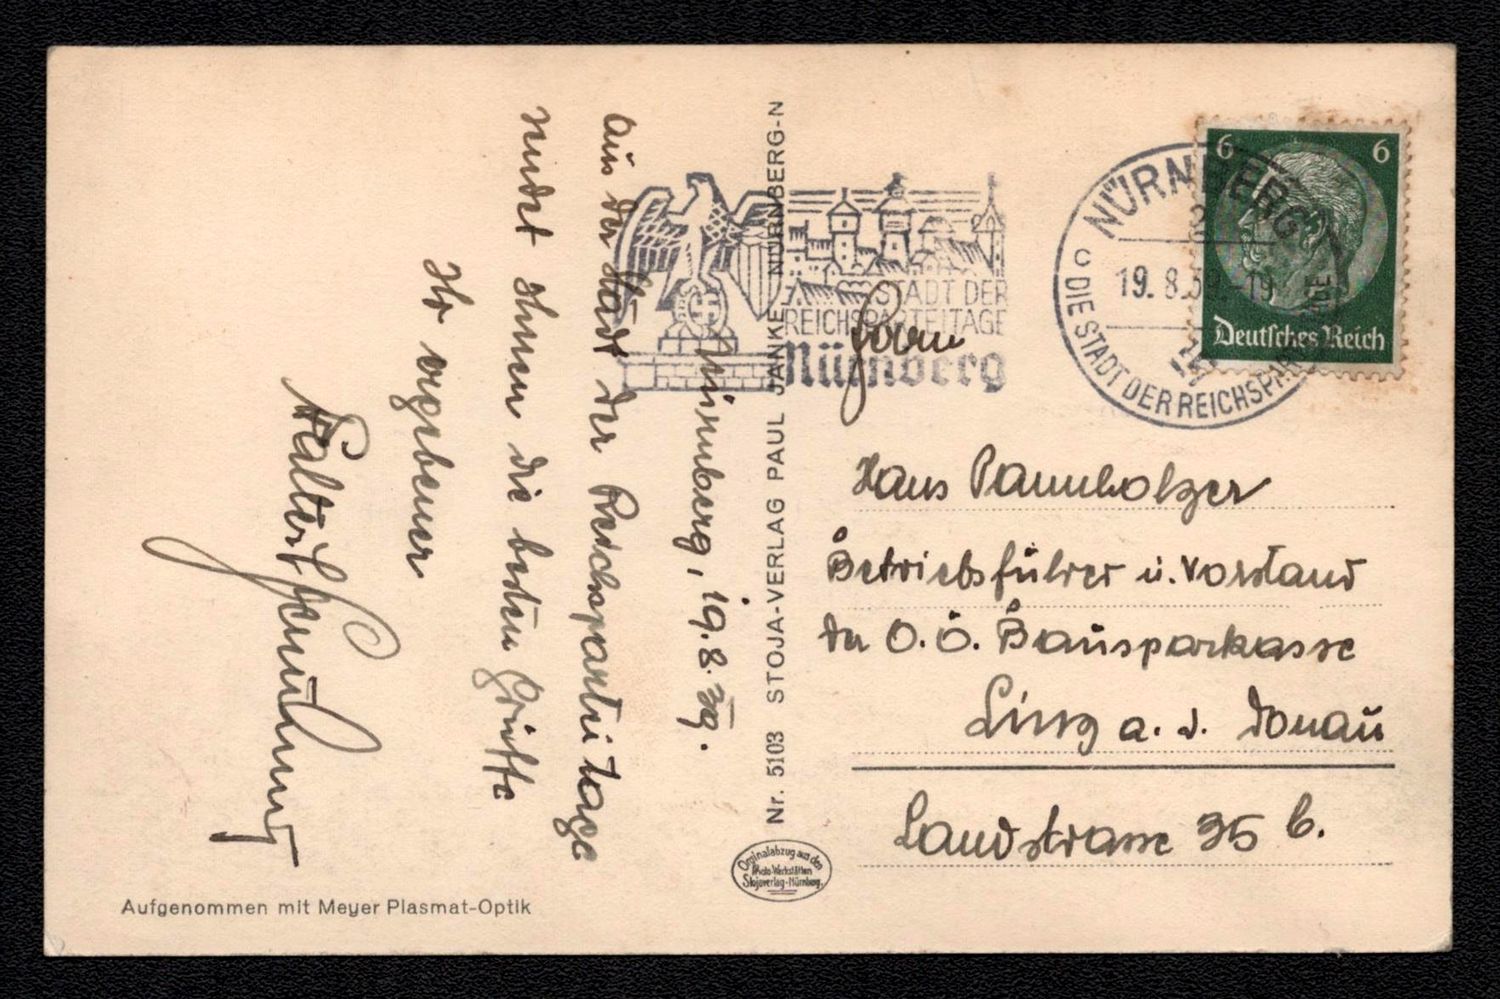 Nürnberg, 19.8.39.
Aus der Stadt der Reichsparteitage
sendet Ihnen die besten Grüsse
Ihr ergebener
Walter
Nr. 5103 STOJA-VERLAG PAUL JANKE, NÜRNBERG-N
STADT DER
REICHSPARTEITAGE
Nürnberg
NÜRNBERG
2
19. 8. 39
C DIE STADT DER REICHSPARTEITAGE
6 6
Deutsches Reich
Herrn
Hans Pannholzer
Betriebsführer u. Vorstand
der O. Ö. Bausparkasse
Linz a. d. Donau
Landstrasse 35 b.
Orginalabzug aus den
Photo-Werkstätten
Stojaverlag-Nürnberg.
Aufgenommen mit Meyer Plasmat-Optik